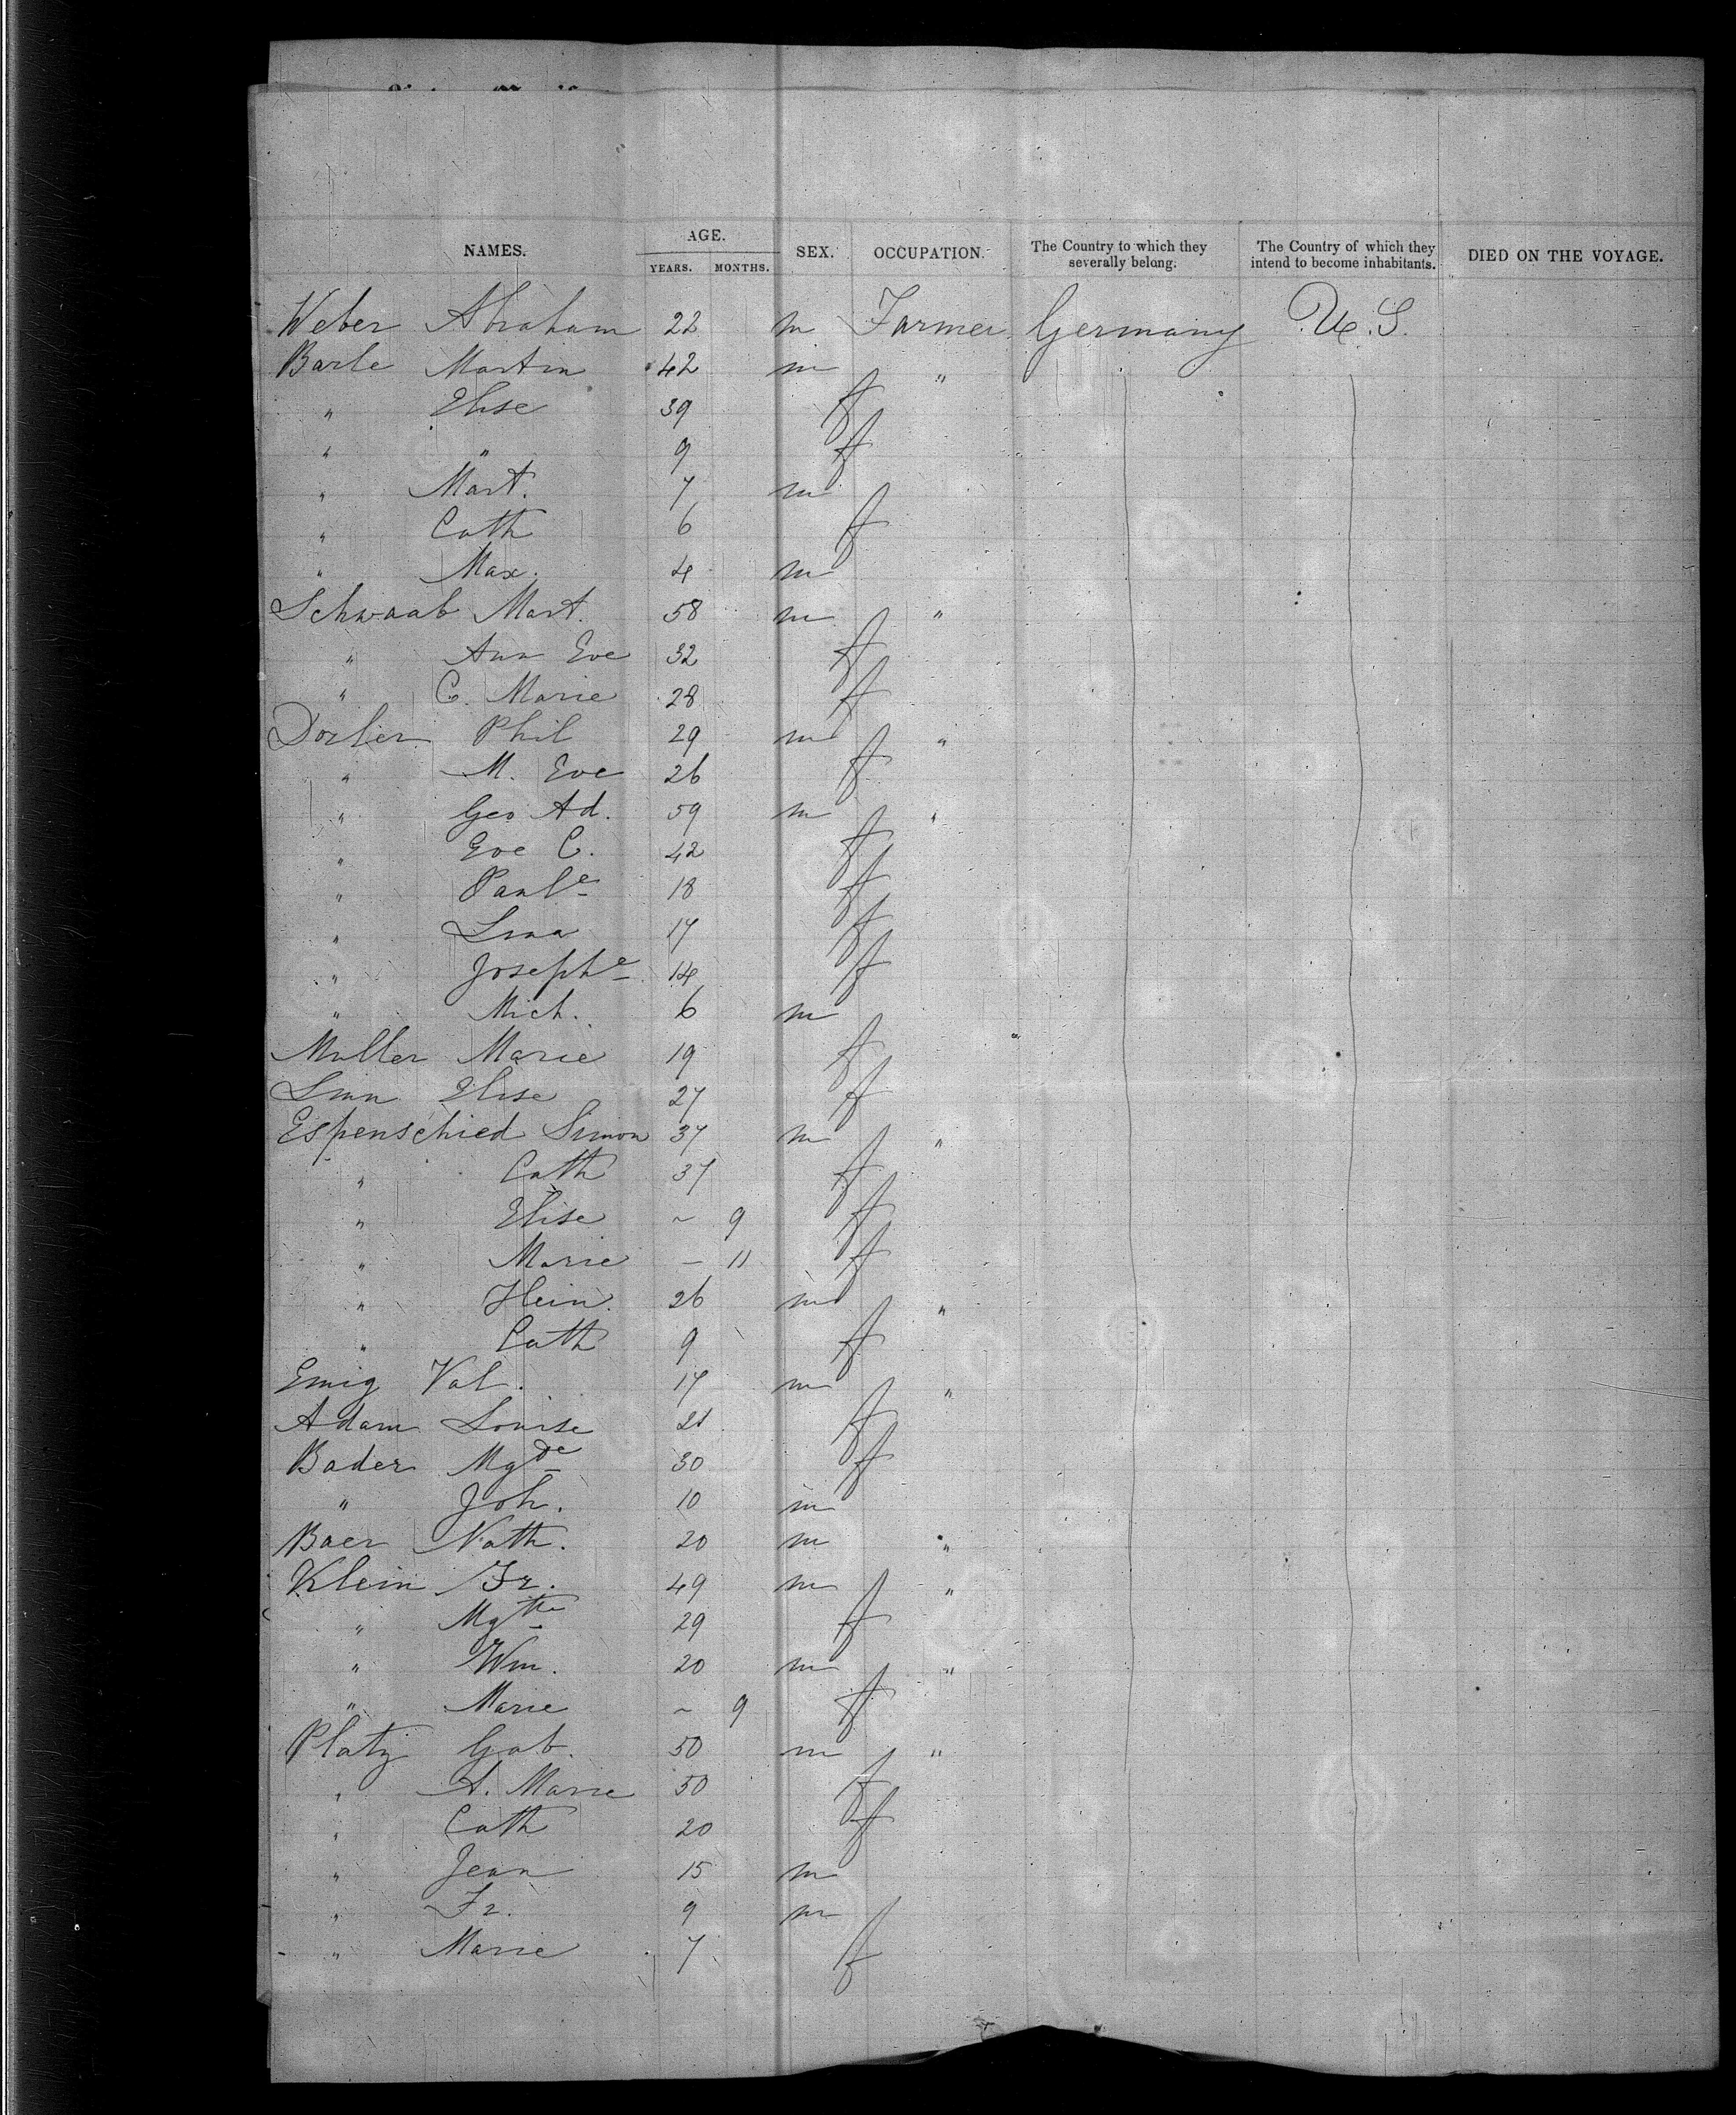 NAMES. AGE. YEARS. MONTHS. SEX. OCCUPATION. The Country to which they severally belong. The Country of which they intend to become inhabitants. DIED ON THE VOYAGE.
Weber Abraham 22 m Farmer Germany U.S.
Barle Martin 42 m "
" Elise 39 f
" " 9 f
" Mart. 7 m
" Cath 6 f
" Max. 4 m
Schwaab Mart. 58 m "
" Ann Eve 32 f
" C. Marie 28 f
Dorlier Phil 29 m "
" M. Eve 26 f
" Geo Ad. 59 m "
" Eve C. 42 f
" Paule 18 f
" Lina 17 f
" Josephe 14 f
" Mich. 6 m
Muller Marie 19 f
Linn Elise 27 f
Espenschied Simon 37 m "
" Cath 37 f
" Elise ~ 9 f
" Marie – 11 f
" Hein. 26 m "
" Cath 9 f
Emig Val. 17 m "
Adam Louise 21 f
Bader Mgde 30 f
" Joh. 10 m
Baer Nath. 20 m "
Klein Fr. 49 m "
" Mgthe 29 f
" Wm. 20 m "
" Marie ~ 9 f
Platz Gab. 50 m "
" A. Marie 50 f
" Cath 20 f
" Jean 15 m
" Fr. 9 m
" Marie 7 f